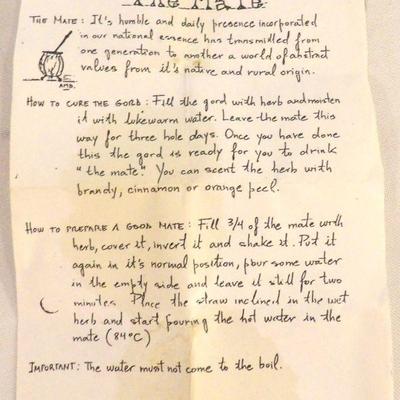 THE MATE.
THE MATE: It's humble and daily presence incorporated
in our national essence has transmitled from
one generation to another a world of abstract
values from it's native and rural origin.
AMB.
HOW TO CURE THE GORD: Fill the gord with herb and moisten
it with lukewarm water. Leave the mate this
way for three hole days. Once you have done
this the gord is ready for you to drink
"the mate". You can scent the herb with
brandy, cinnamon or orange peel.
HOW TO PREPARE A GOOD MATE: Fill 3/4 of the mate with
herb, cover it, invert it and shake it. Put it
again in it's normal position, pour some water
in the empty side and leave it still for two
minutes. Place the straw inclined in the wet
herb and start pouring the hot water in the
mate (84°C)
IMPORTANT: The water must not come to the boil.